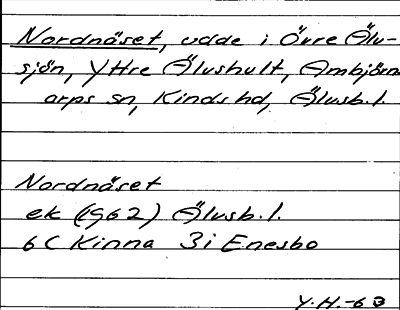 Nordnäset, udde i Övre Älu-
sjön, Yttre Älushult, Ambjörn
arps sn, Kinds hd, Älvsb. l.
Nordnäset
ek (1962) Älvsb. l.
6C Kinna 3i Enesbo
Y. H. -63